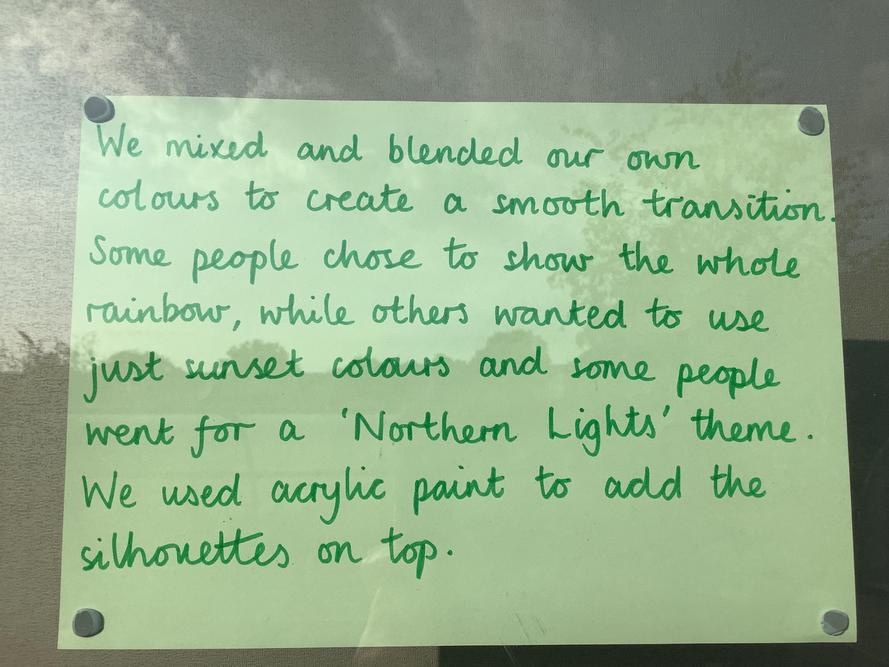 We mixed and blended our own
colours to create a smooth transition.
Some people chose to show the whole
rainbow, while others wanted to use
just sunset colours and some people
went for a 'Northern Lights' theme.
We used acrylic paint to add the
silhouettes on top.